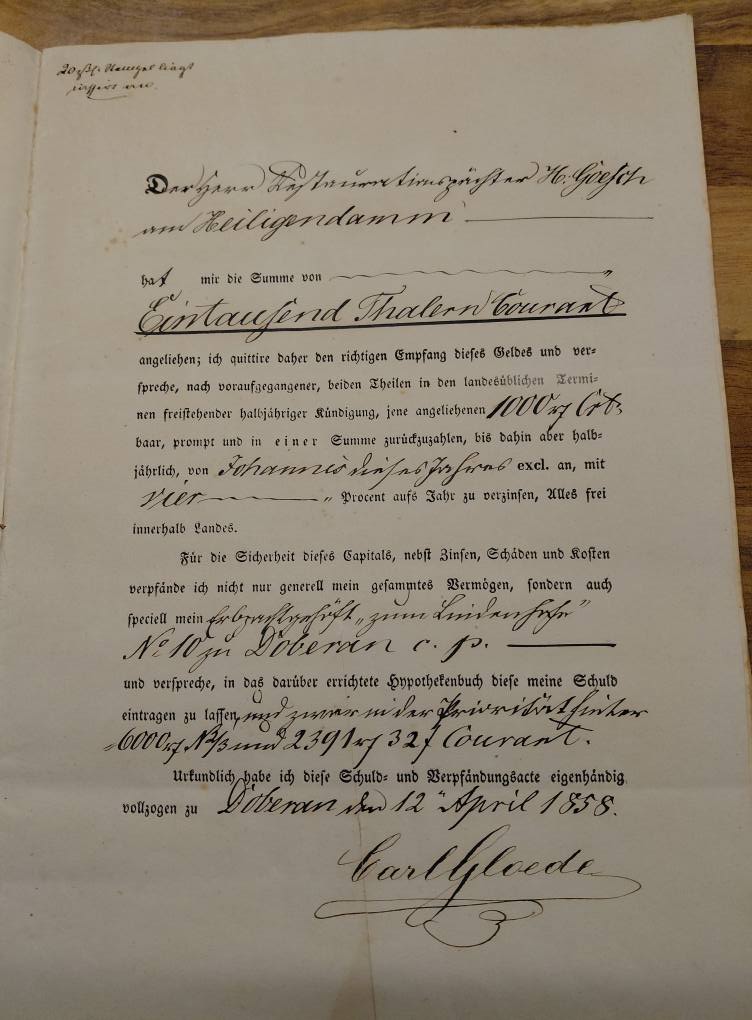 20 ßl. Stempel liegt
cassirt an.
Der Herr Restaurationspächter H. Goesch
am Heiligendamm
hat mir die Summe von
Eintausend Thalern Courant
angeliehen; ich quittire daher den richtigen Empfang dieses Geldes und ver-
spreche, nach voraufgegangener, beiden Theilen in den landesüblichen Termi-
nen freistehender halbjähriger Kündigung, jene angeliehenen 1000 rł Crt.
baar, prompt und in einer Summe zurückzuzahlen, bis dahin aber halb-
jährlich, von Johannis dieses Jahres excl. an, mit
vier Procent aufs Jahr zu verzinsen, Alles frei
innerhalb Landes.
Für die Sicherheit dieses Capitals, nebst Zinsen, Schäden und Kosten
verpfände ich nicht nur generell mein gesammtes Vermögen, sondern auch
speciell mein Erbpachtgehöft „zum Lindenhofe"
No 10 zu Doberan c. p.
und verspreche, in das darüber errichtete Hypothekenbuch diese meine Schuld
eintragen zu lassen, und zwar in der Priorität hinter
6000 rł N2/3 und 2391 rł 32 ß Courant.
Urkundlich habe ich diese Schuld- und Verpfändungsacte eigenhändig
vollzogen zu Doberan den 12 April 1858.
Carl Gloede